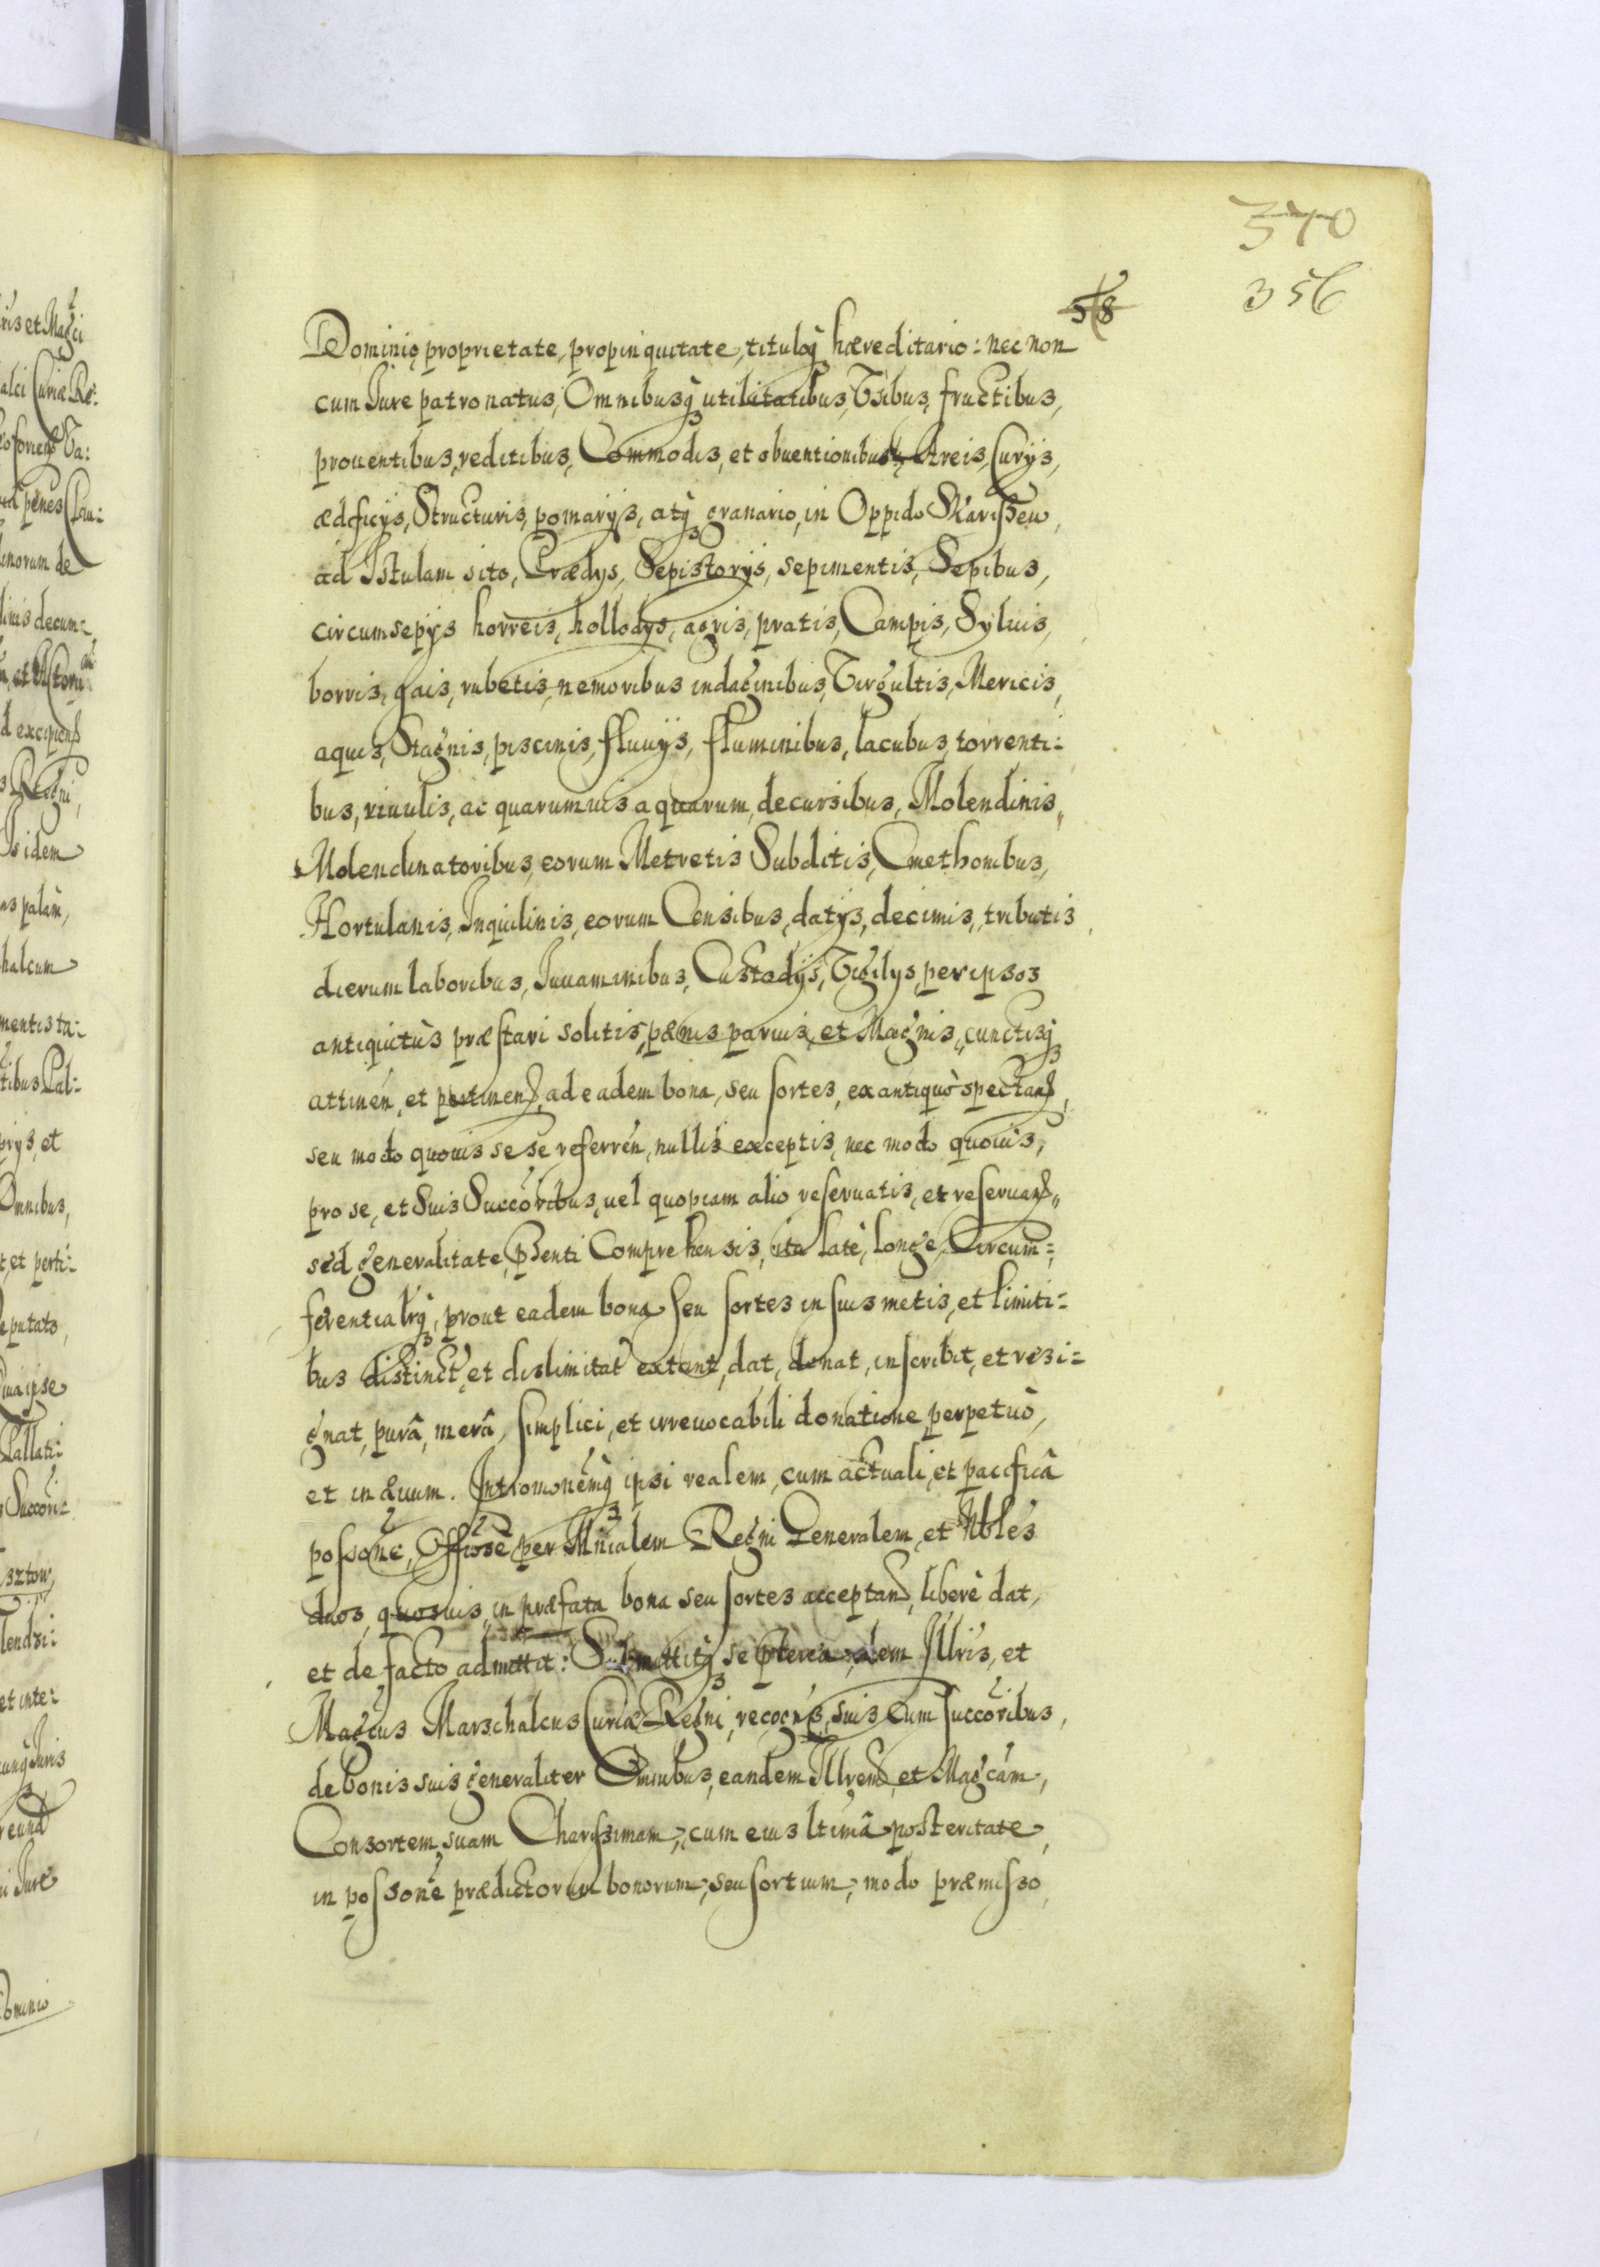 370
356
518
Dominio, proprietate, propinquitate, tituloq3 hæreditario: nec non
cum Iure patronatus, Omnibusq3 utilitatibus, Vsibus, fructibus,
prouentibus, reditibus, Commodis, et obuentionibus, Areis, Curijs,
ædificijs, Structuris, pomarijs, atq3 granario, in Oppido Skarissew
ad Istulam sito, Prædijs, Sepistorijs, sepimentis, Sepibus,
circumsepijs horreis, hollodijs, agris, pratis, Campis, Syluis,
borris, gais, rubetis, nemoribus indaginibus, Virgultis, Mericis,
aquis, Stagnis, piscinis, fluuijs, fluminibus, lacubus, torrenti:
bus, riuulis, ac quarumuis aquarum, decursibus, Molendinis,
Molendinatoribus, eorum Metretis Subditis, Cmethonibus,
Hortulanis, Inquilinis, eorum Censibus, datijs, decimis, tributis
dierum laboribus, Iuuaminibus, Custodijs, Vigilijs, per ipsos
antiquitùs præstari solitis, pænis paruis, et Magnis, cunctisq3
attinen, et pertinen, ad eadem bona, seu sortes, ex antiquò spectan,
seu modo quouis se se referren, nullis exceptis, nec modo quouis,
pro se, et Suis Succoribus, uel quopiam alio reseruatis, et reseruan,
sed generalitate, pñti Comprehensis, ita latè, longè, Circum:
ferentialrq3, prout eadem bona seu sortes in suis metis, et limiti:
bus distinct, et dislimitat extant, dat, donat, inscribit, et resi:
gnat, purâ, merâ, simplici, et irreuocabili donatione perpetuò,
et in æuum. Intromonemq3 ipsi realem, cum actuali, et pacificâ
possone, Offiose per Mnialem Regni Generalem, et Nbles
duos, quosuis, in præfata bona seu sortes acceptan, liberè dat,
et de facto admittit: Submittitq3 se pterea, idem Illris, et
Magcus Marschalcus Curiæ Regni, recogns, suis cum succoribus,
de bonis suis generaliter Omnibus, eandem Illrem, et Magcam,
Consortem suam Charissimam, cum eius ltimâ posteritate,
in possone prædictorum bonorum, seu sortium, modo præmisso